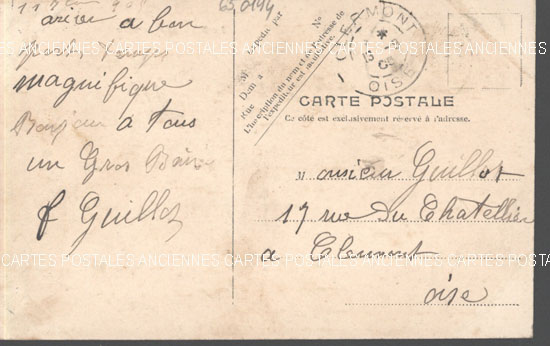 650144
arivé a bon
port temps
magnifique
Bonjour a tous
un Gros Baiser
f Guillot
No
M
Expédié par
Dem à
Rue
L'inscription du nom et de l'adresse de
l'expéditeur est facultative.
CLERMONT
OISE
CARTE POSTALE
Ce côté est exclusivement réservé à l'adresse.
Monsieur Guillot
17 rue du Chatellier
a Clermont
oise
CARTES POSTALES ANCIENNES CARTES POSTALES ANCIENNES CARTES POSTALES ANCIENNES
CARTES POSTALES ANCIENNES CARTES POSTALES ANCIENNES CARTES POSTALES ANCIENNES